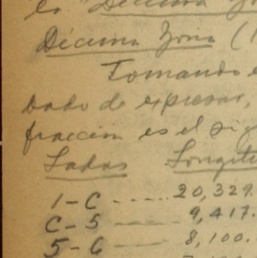 la "Décima Zo
Décima Zona (1
Tomando e
bado de expresar,
fracción es el sig
Lados Longitu
1-C ---- 20,329.
C-5 ---- 9,417.
5-6 ---- 8,100.